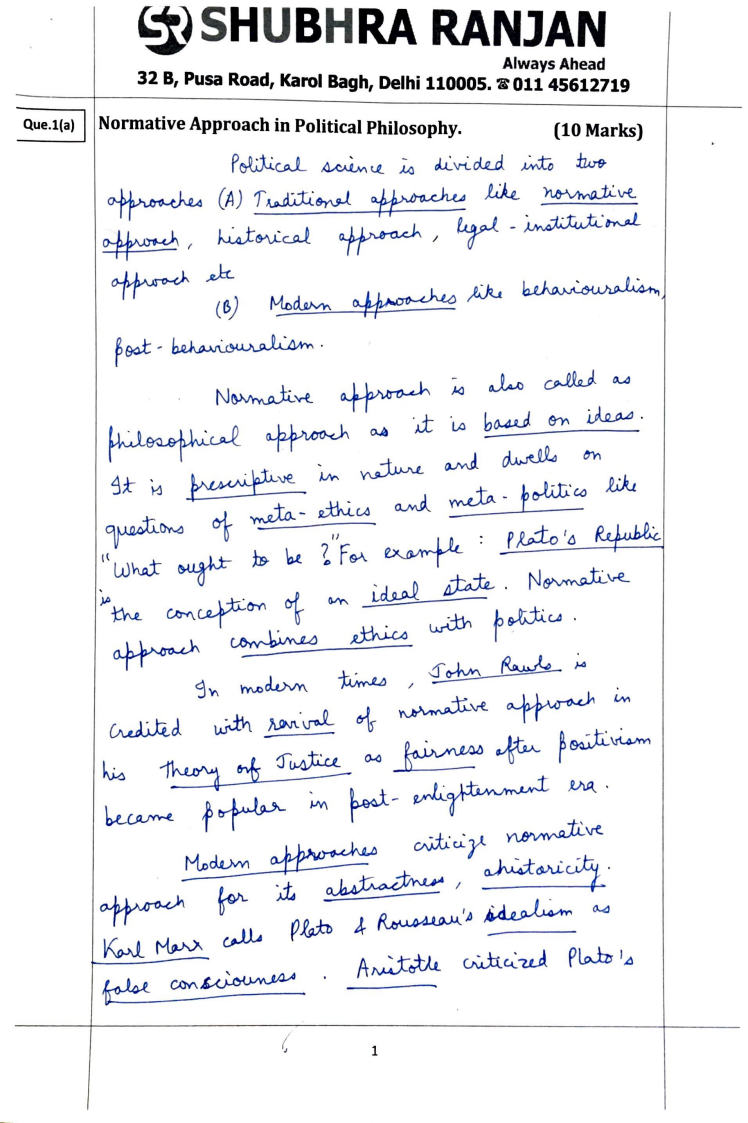 SR SHUBHRA RANJAN
Always Ahead
32 B, Pusa Road, Karol Bagh, Delhi 110005. ☎ 011 45612719
Que.1(a) Normative Approach in Political Philosophy. (10 Marks)
Political science is divided into two
approaches (A) Traditional approaches like normative
approach, historical approach, legal - institutional
approach etc
(B) Modern approaches like behaviouralism,
post - behaviouralism.
Normative approach is also called as
philosophical approach as it is based on ideas.
It is prescriptive in nature and dwells on
questions of meta-ethics and meta-politics like
"What ought to be ?" For example : Plato's Republic
is the conception of an ideal state. Normative
approach combines ethics with politics.
In modern times, John Rawls is
credited with revival of normative approach in
his Theory of Justice as fairness after positivism
became popular in post-enlightenment era.
Modern approaches criticize normative
approach for its abstractness, ahistoricity.
Karl Marx calls Plato & Rousseau's idealism as
false consciouness. Aristotle criticized Plato's
1